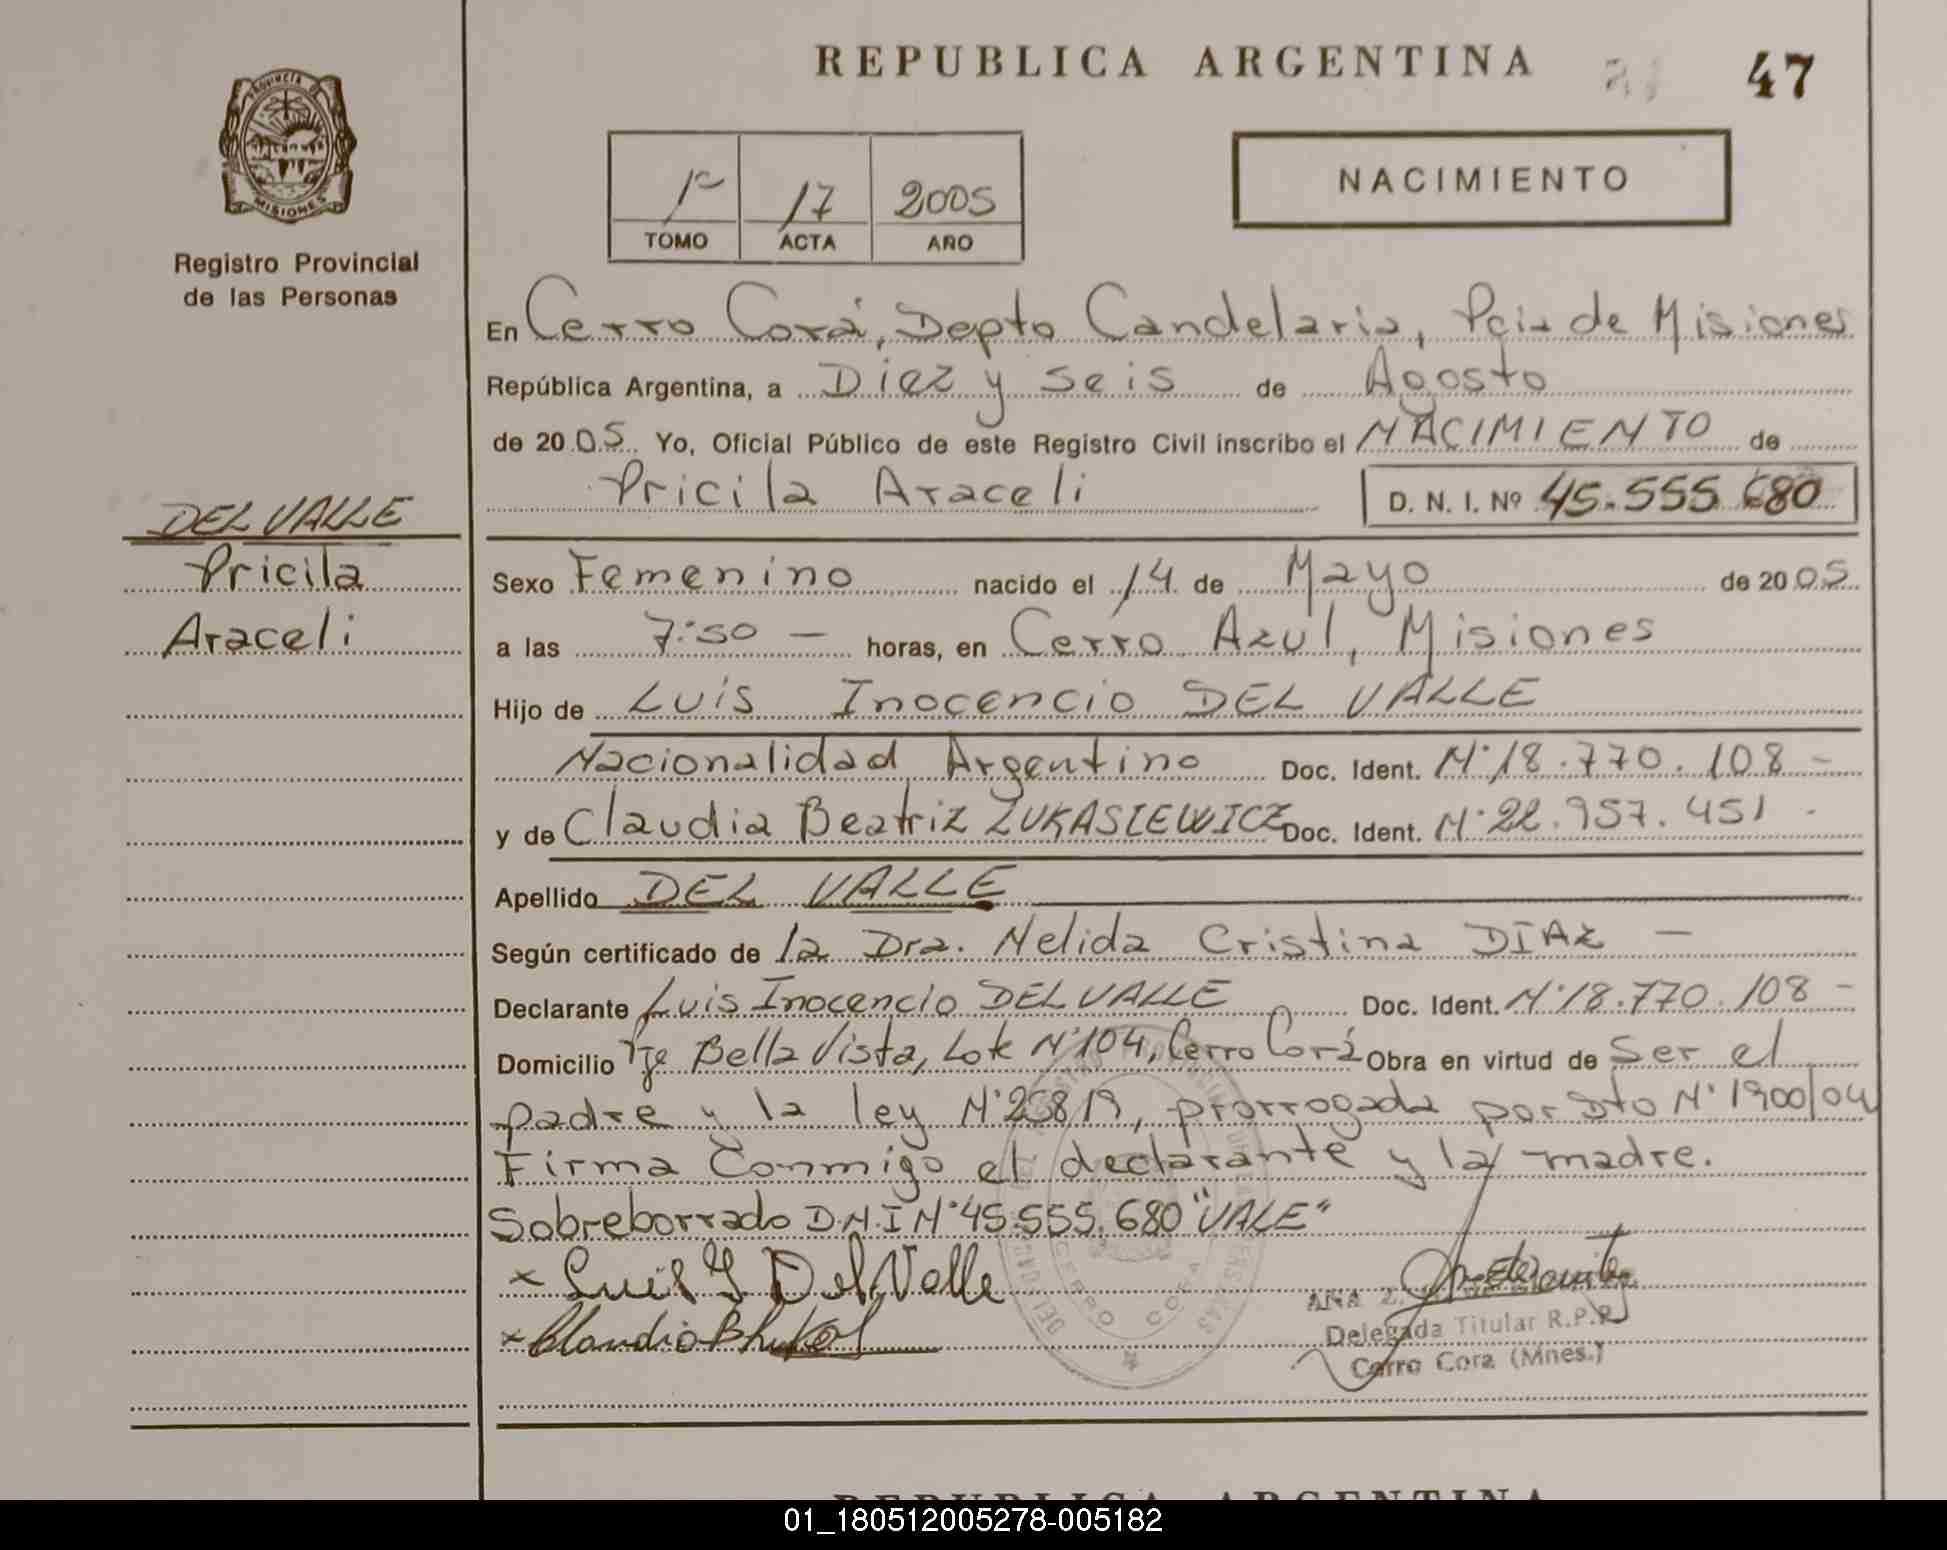 REPUBLICA ARGENTINA
47
PROVINCIA DE
MISIONES
Registro Provincial
de las Personas
1º 17 2005
TOMO ACTA AÑO
NACIMIENTO
En Cerro Corá, Depto Candelaria, Pcia de Misiones
República Argentina, a Diez y seis de Agosto
de 2005 Yo, Oficial Público de este Registro Civil inscribo el NACIMIENTO de
Pricila Araceli D. N. I. Nº 45.555.680
DEL VALLE
Pricila
Araceli
Sexo Femenino nacido el 14 de Mayo de 2005
a las 7:50 — horas, en Cerro Azul, Misiones
Hijo de Luis Inocencio DEL VALLE
Nacionalidad Argentino Doc. Ident. Nº 18.770.108 -
y de Claudia Beatriz LUKASIEWICZ Doc. Ident. Nº 22.957.451 -
Apellido DEL VALLE
Según certificado de la Dra. Nelida Cristina DIAZ —
Declarante Luis Inocencio DEL VALLE Doc. Ident. Nº 18.770.108 -
Domicilio Pje Bella Vista, Lote Nº 104, Cerro Corá Obra en virtud de Ser el
padre y la ley Nº 25819, prorrogada por Dto Nº 1900/04
Firma Conmigo el declarante y la madre.
Sobreborrado D.N.I Nº 45.555.680 "VALE"
x Luis I Del Valle
x Claudia B
ANA
Delegada Titular R.P.P.
Cerro Cora (Mnes.)
CERRO CORA
REPUBLICA ARGENTINA
01_180512005278-005182